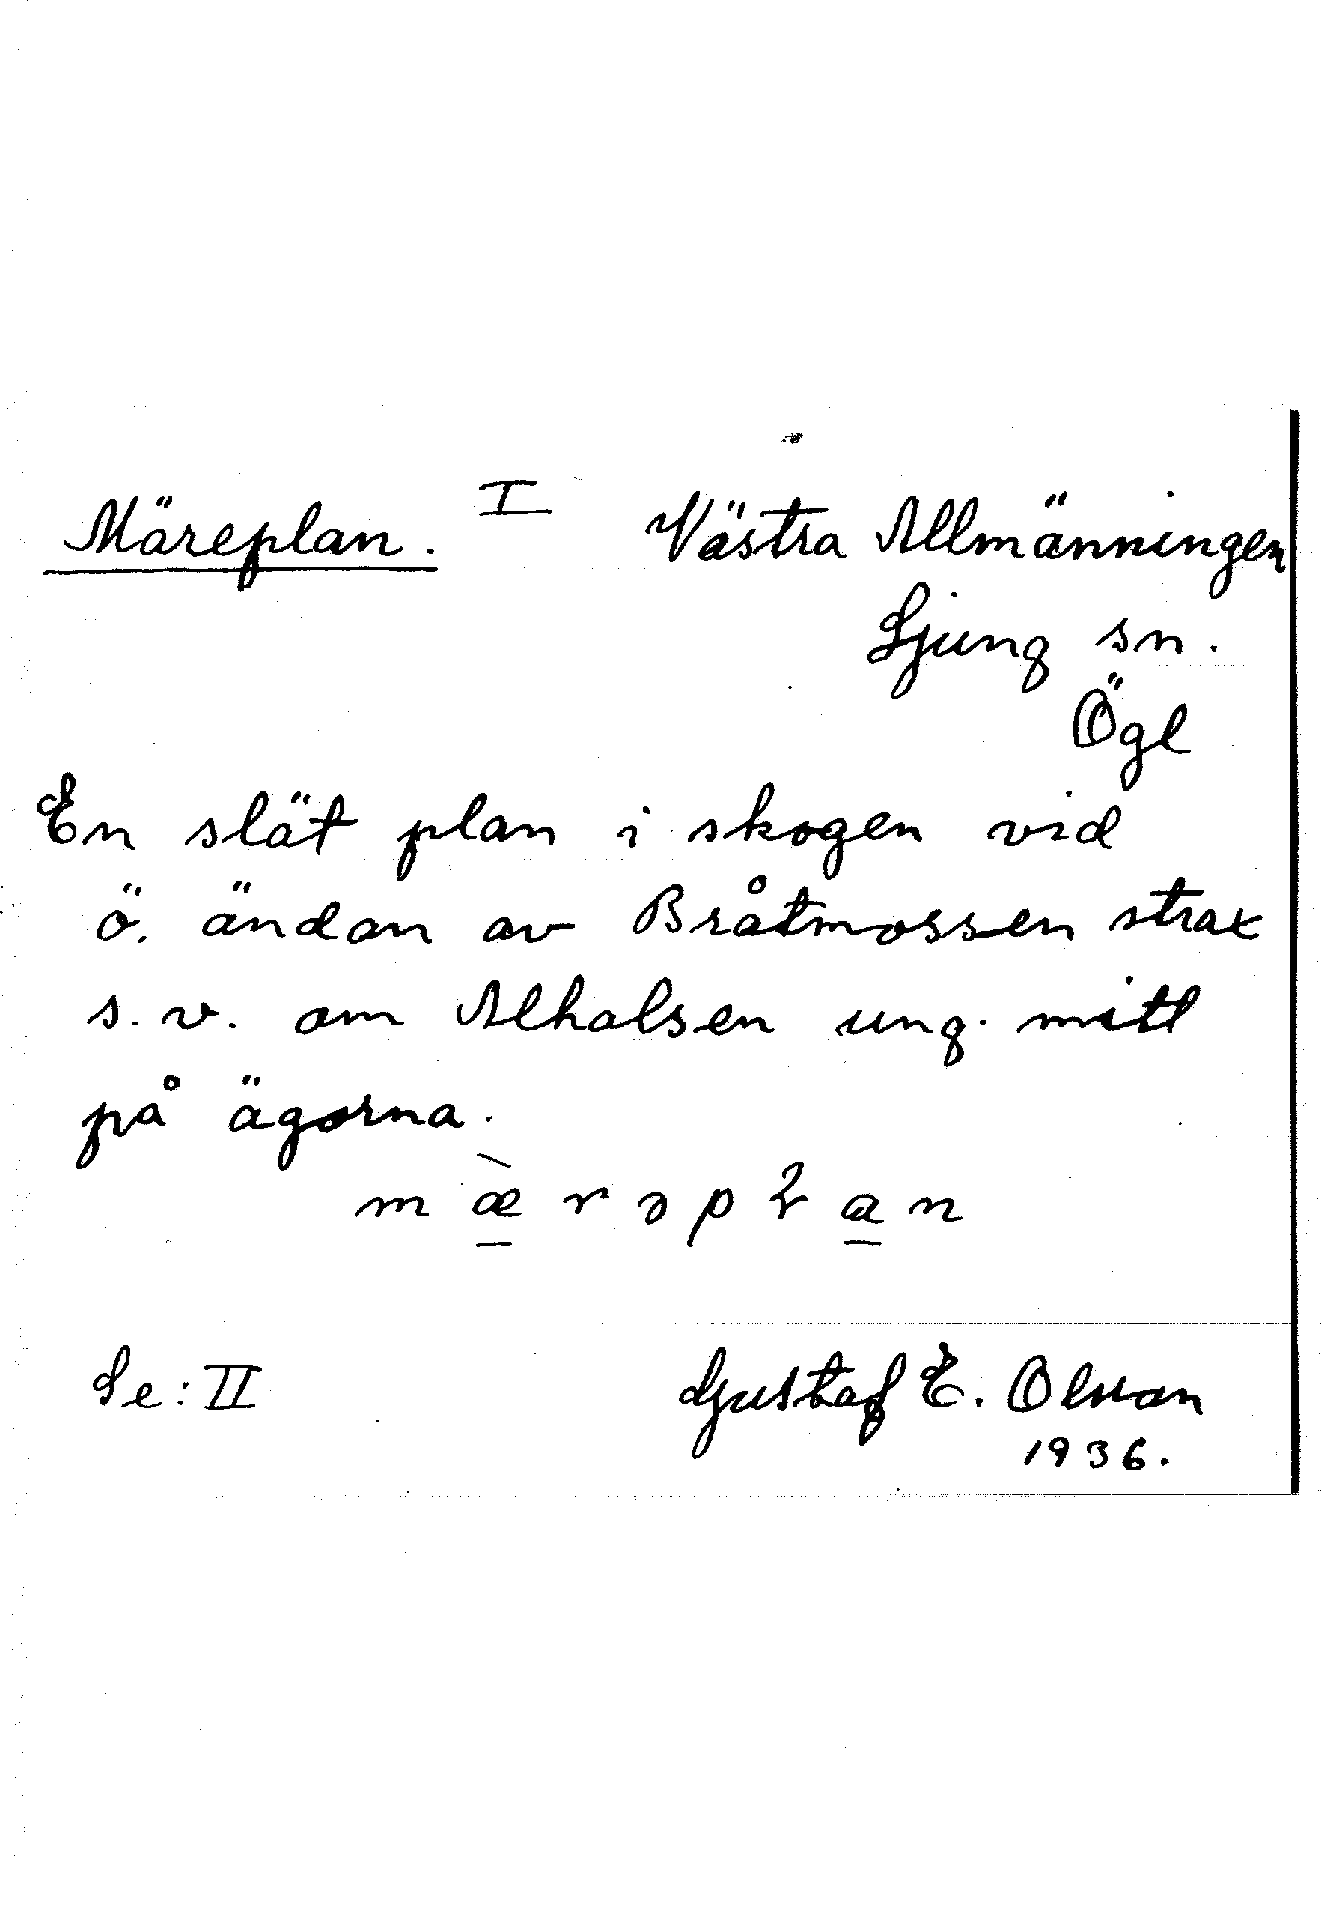 Märeplan. I Västra Allmänningen
Ljung sn.
Ögl
En slät plan i skogen vid
ö. ändan av Bråtmossen strax
s.v. om Alhalsen ung. mitt
på ägorna.
mæ̀rəpłan
Se: II Gustaf E. Olsson
1936.